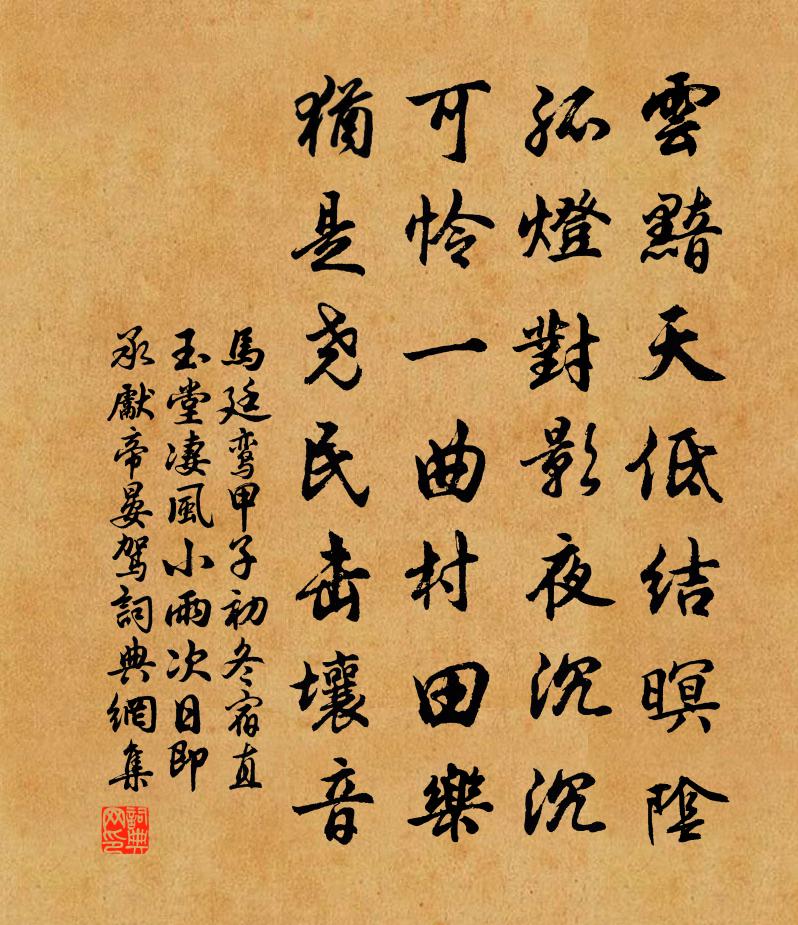 雲黯天低結暝陰
孤燈對影夜沉沉
可怜一曲村田樂
猶是尧民击壤音
馬廷鸾甲子初冬宿直
玉堂凄風小雨次日即
承獻帝晏駕詞典網集
詞典网印